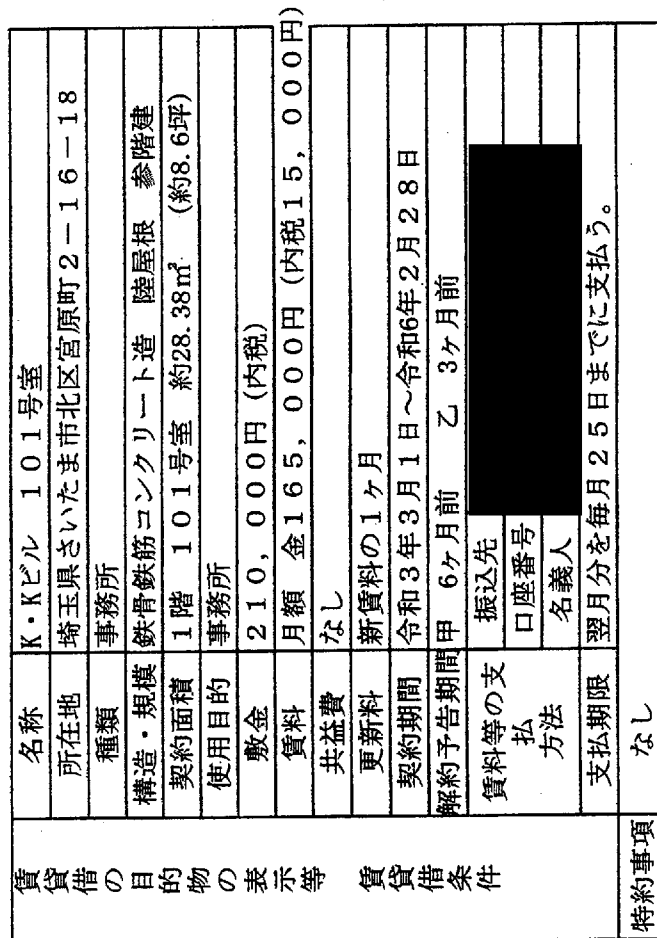 賃貸借の目的物の表示等
名称 K・Kビル 101号室
所在地 埼玉県さいたま市北区宮原町2-16-18
種類 事務所
構造・規模 鉄骨鉄筋コンクリート造 陸屋根 参階建
契約面積 1階 101号室 約28.38㎡ (約8.6坪)
使用目的 事務所
賃貸借条件
敷金 210,000円 (内税)
賃料 月額 金165,000円 (内税15,000円)
共益費 なし
更新料 新賃料の1ヶ月
契約期間 令和3年3月1日~令和6年2月28日
解約予告期間 甲 6ヶ月前 乙 3ヶ月前
賃料等の支
払
方法
振込先
口座番号
名義人
支払期限 翌月分を毎月25日までに支払う。
特約事項 なし